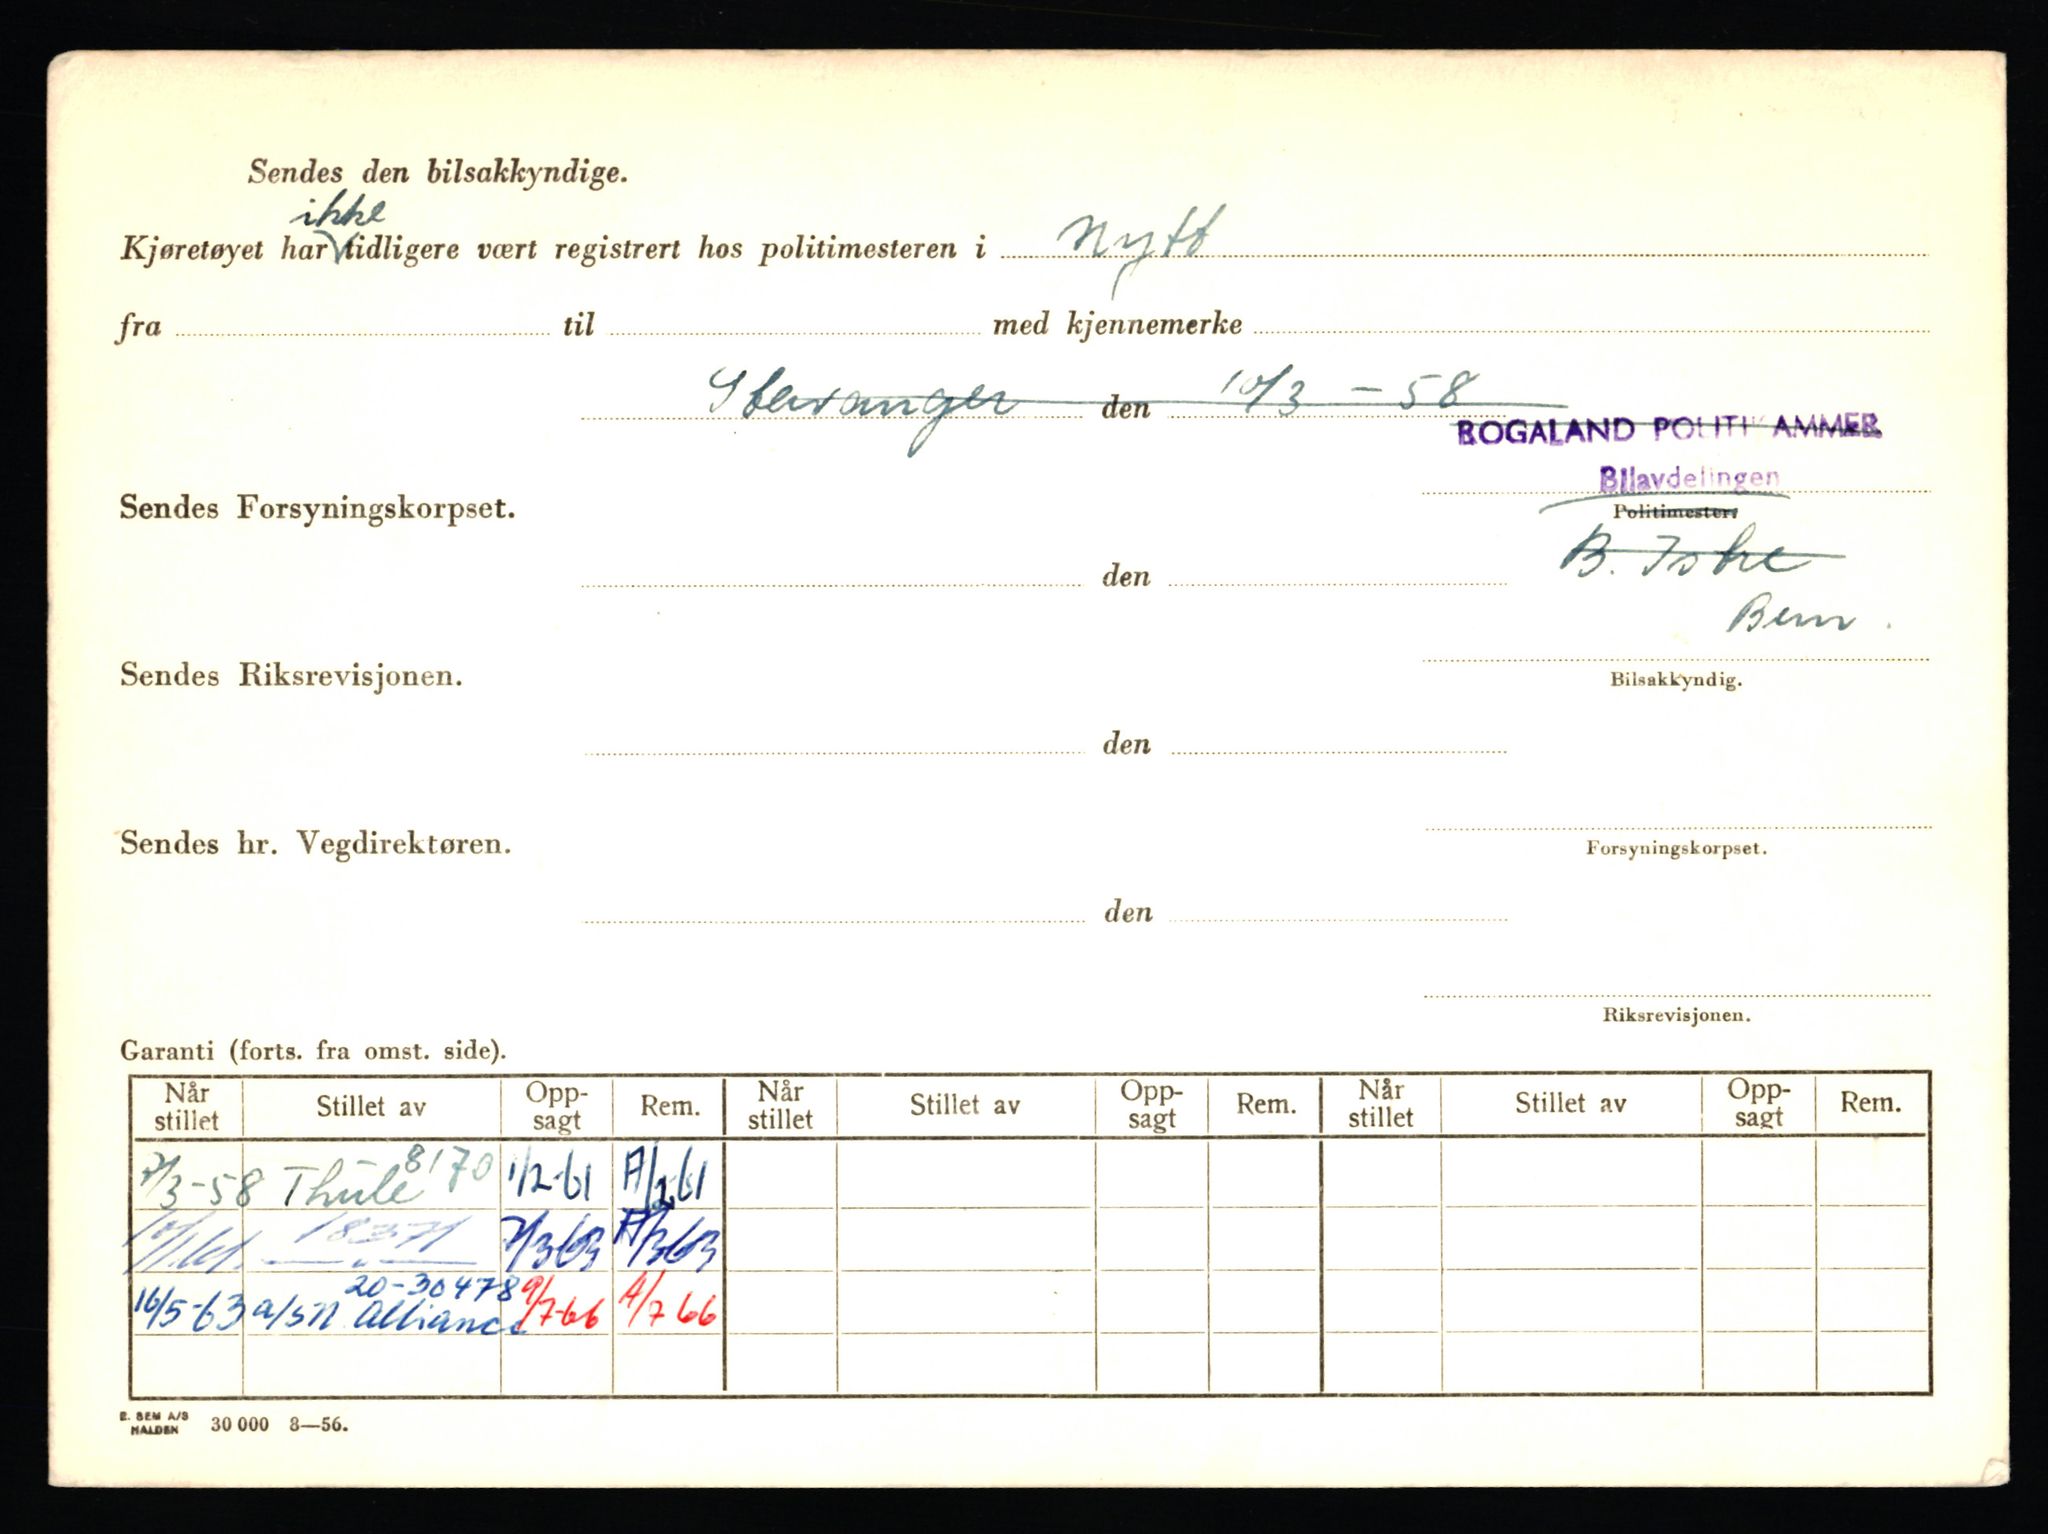 Sendes den bilsakkyndige.
ikke
Kjøretøyet har tidligere vært registrert hos politimesteren i Nytt
fra til med kjennemerke
Stavanger den 10/3 - 58
ROGALAND POLITIKAMMER
Bilavdelingen
Sendes Forsyningskorpset.
Politimester.
den
Sendes Riksrevisjonen.
Bilsakkyndig.
den
Sendes hr. Vegdirektøren.
Forsyningskorpset.
den
Riksrevisjonen.
Garanti (forts. fra omst. side).
Når stillet Stillet av Opp- sagt Rem. Når stillet Stillet av Opp- sagt Rem. Når stillet Stillet av Opp- sagt Rem.
8170
/3-58 Thule 1/2-61 A/2 61
18371
/3 63 A/3 63
20-30478
16/5-63 a/s N. Alliance 9/7-66 A/7 66
E. SEM A/S
HALDEN 30 000 8—56.